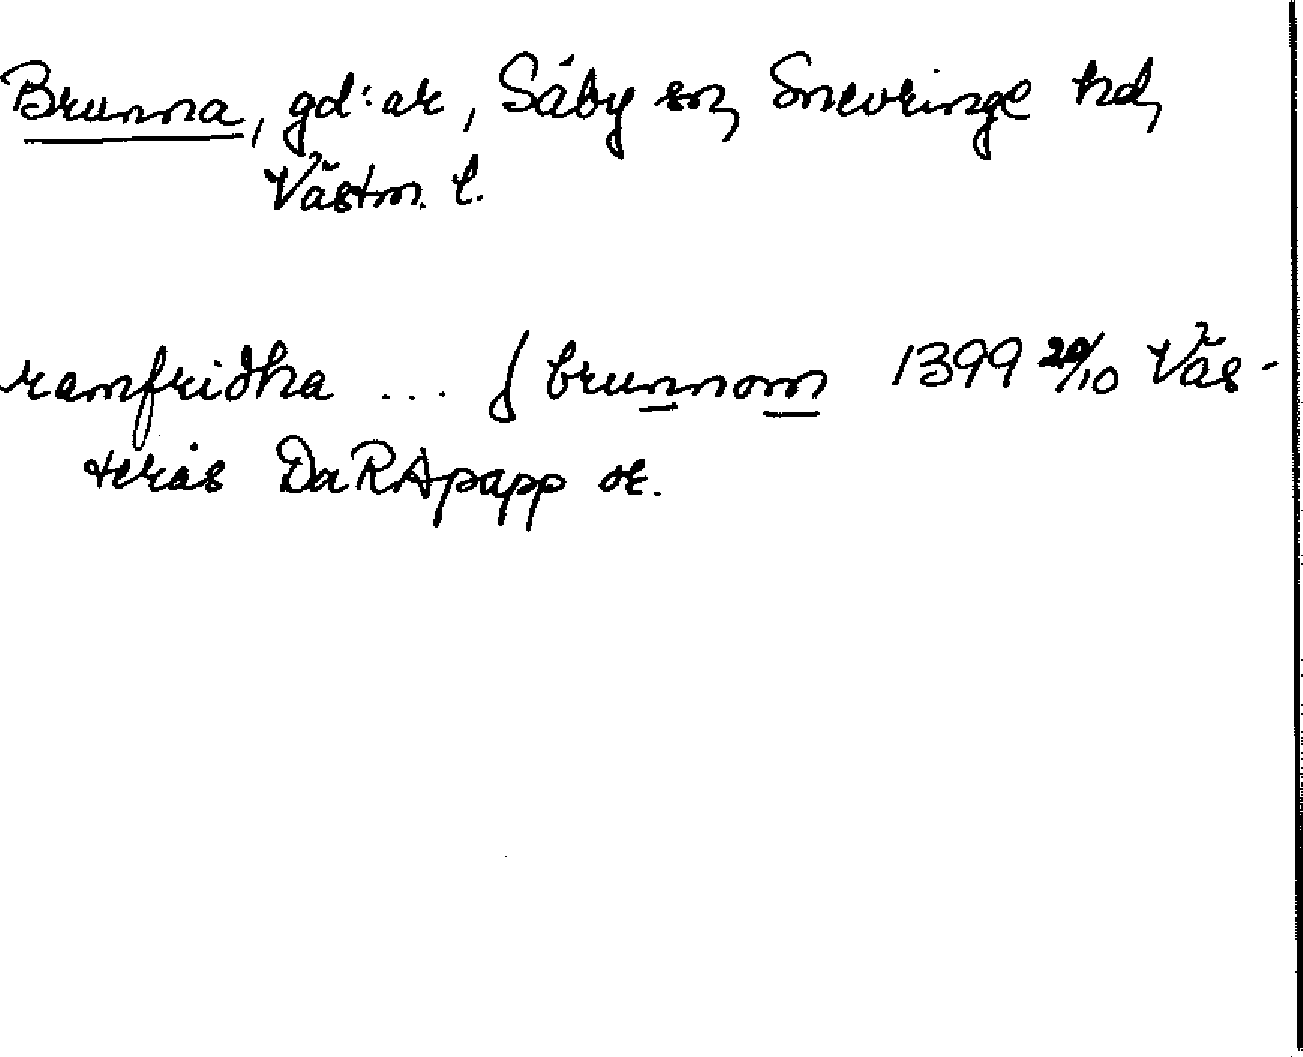 Brunna, gd:ar, Säby sn, Snevringe hd,
Västm. l.
ramfridha ... j brunnom 1399 20/10 Väs-
terås Da RApapp or.